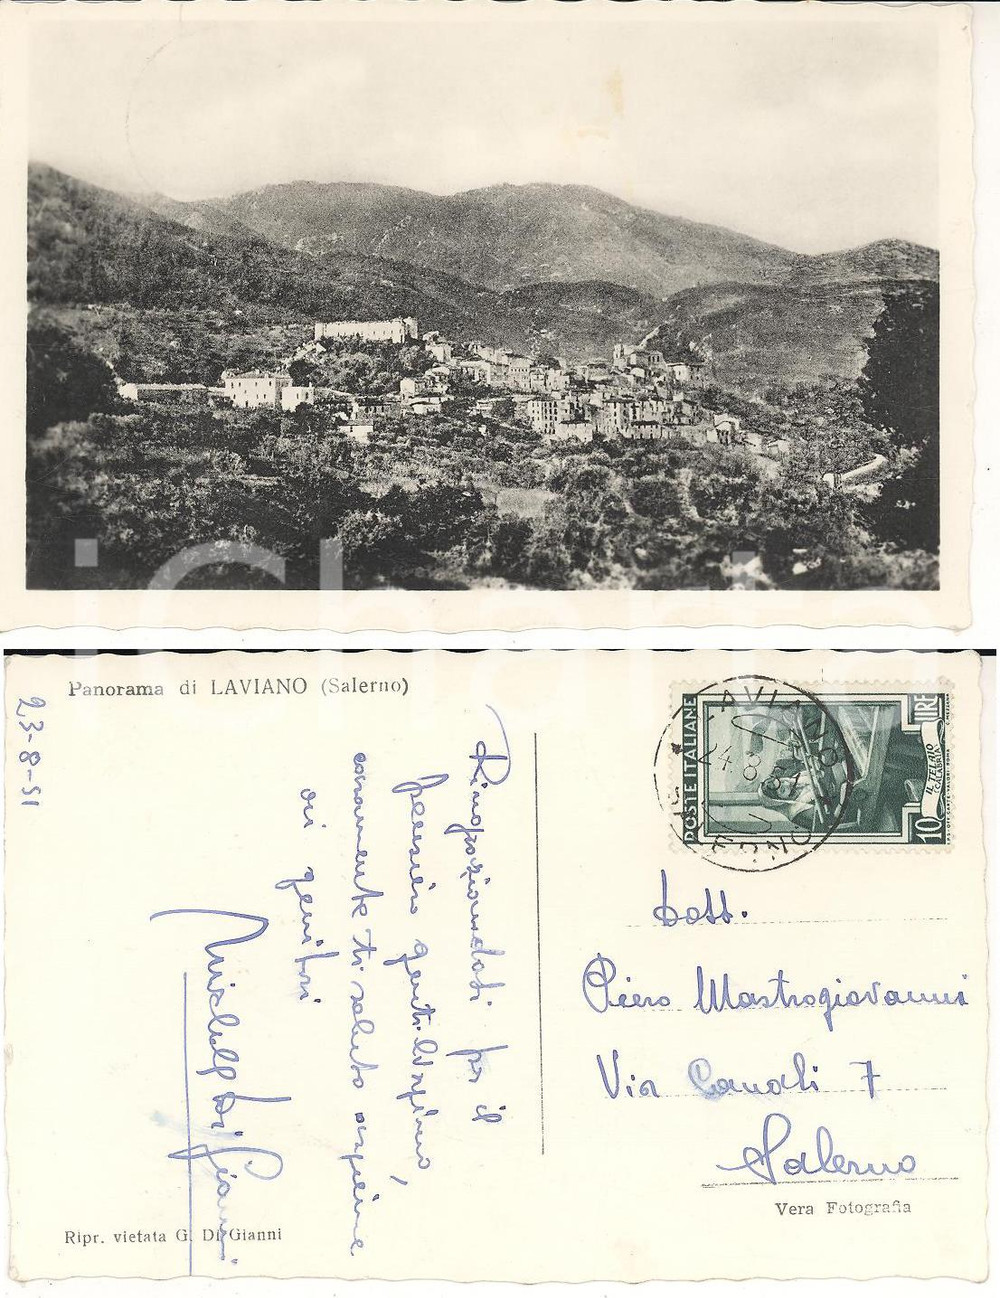 iCharta
Panorama di LAVIANO (Salerno)
23-8-51
Ringraziandoti per il
pensiero gentilissimo,
caramente ti saluto assieme
ai genitori
Michele Di Gianni
Ripr. vietata G. Di Gianni
POSTE ITALIANE
LIRE
10
IL TELAIO
(CALABRIA)
LAVIANO
SALERNO
Dott.
Piero Mastrogiovanni
Via Canali 7
Salerno
Vera Fotografia